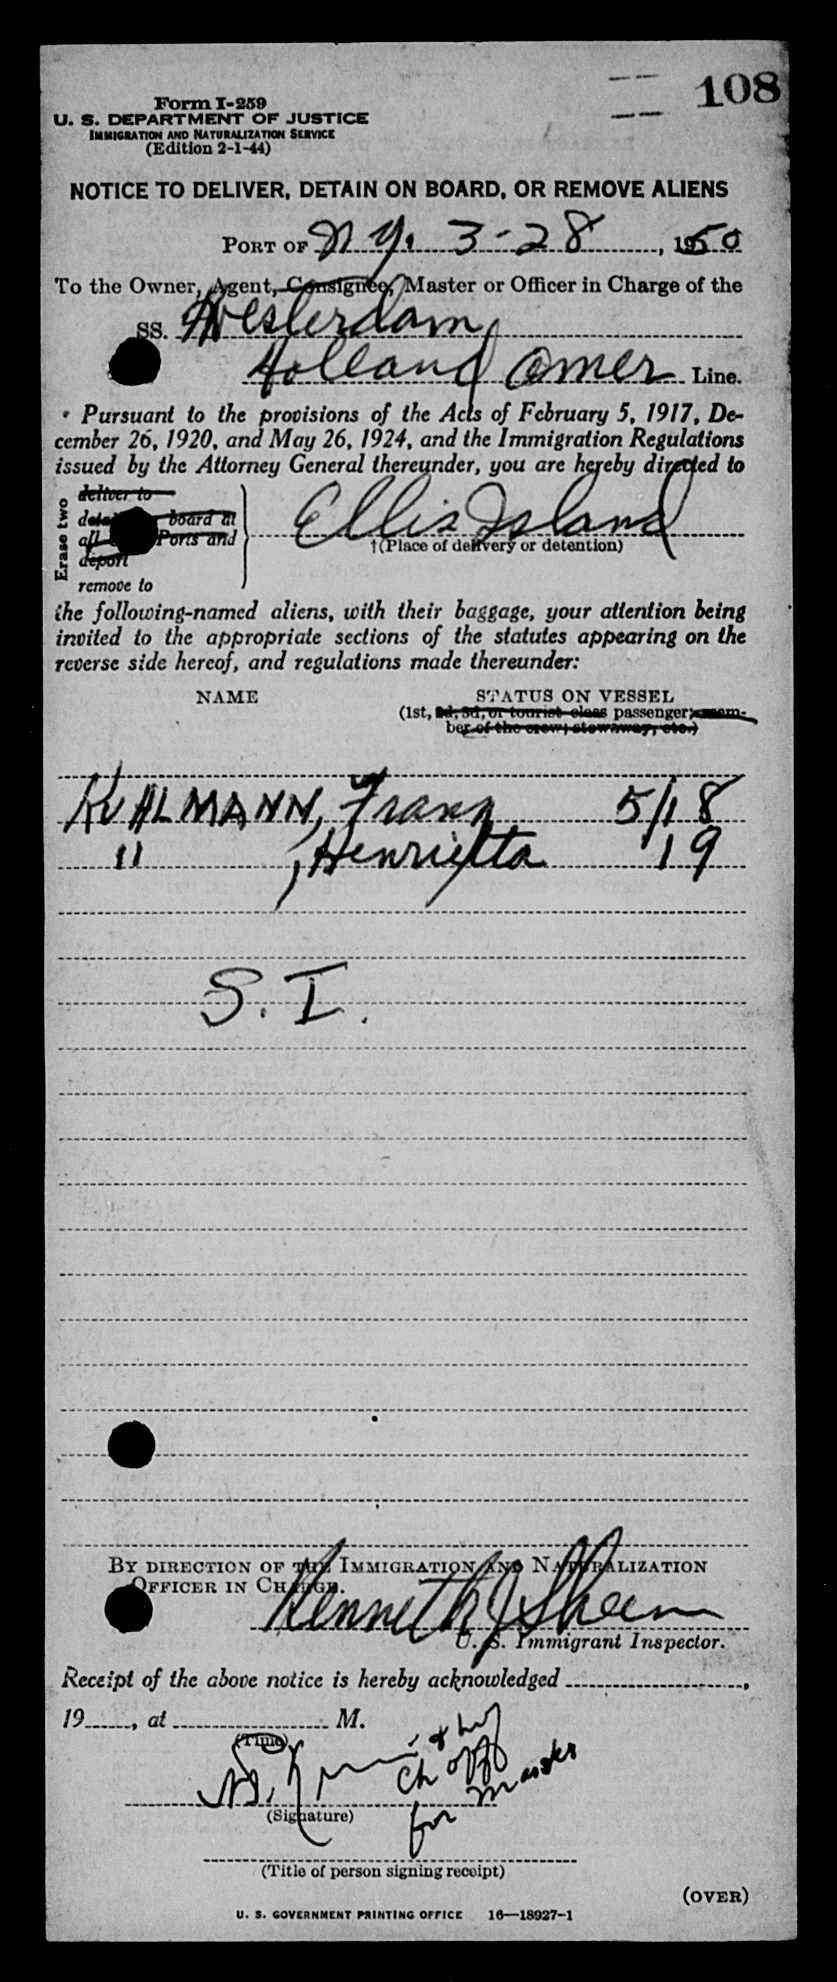 108
Form I-259
U. S. DEPARTMENT OF JUSTICE
IMMIGRATION AND NATURALIZATION SERVICE
(Edition 2-1-44)
NOTICE TO DELIVER, DETAIN ON BOARD, OR REMOVE ALIENS
PORT OF N Y. 3-28, 1950
To the Owner, Agent, Consignee, Master or Officer in Charge of the
SS. Westerdam
Holland Amer Line.
Pursuant to the provisions of the Acts of February 5, 1917, De-
cember 26, 1920, and May 26, 1924, and the Immigration Regulations
issued by the Attorney General thereunder, you are hereby directed to
Erase two
deliver to
board at
Ports and
deport
remove to
Ellis Island
†(Place of delivery or detention)
the following-named aliens, with their baggage, your attention being
invited to the appropriate sections of the statutes appearing on the
reverse side hereof, and regulations made thereunder:
NAME STATUS ON VESSEL
(1st, 2d, 3d, or tourist class passenger; mem-
ber of the crew; stowaway, etc.)
KUHLMANN, Franz 5/18
" , Henrietta 19
S. I.
BY DIRECTION OF THE IMMIGRATION AND NATURALIZATION
OFFICER IN CHARGE.
Kenneth J
U. S. Immigrant Inspector.
Receipt of the above notice is hereby acknowledged ,
19 , at M.
(Time)
ch off
for Master
(Signature)
(Title of person signing receipt)
(OVER)
U. S. GOVERNMENT PRINTING OFFICE 16—18927-1